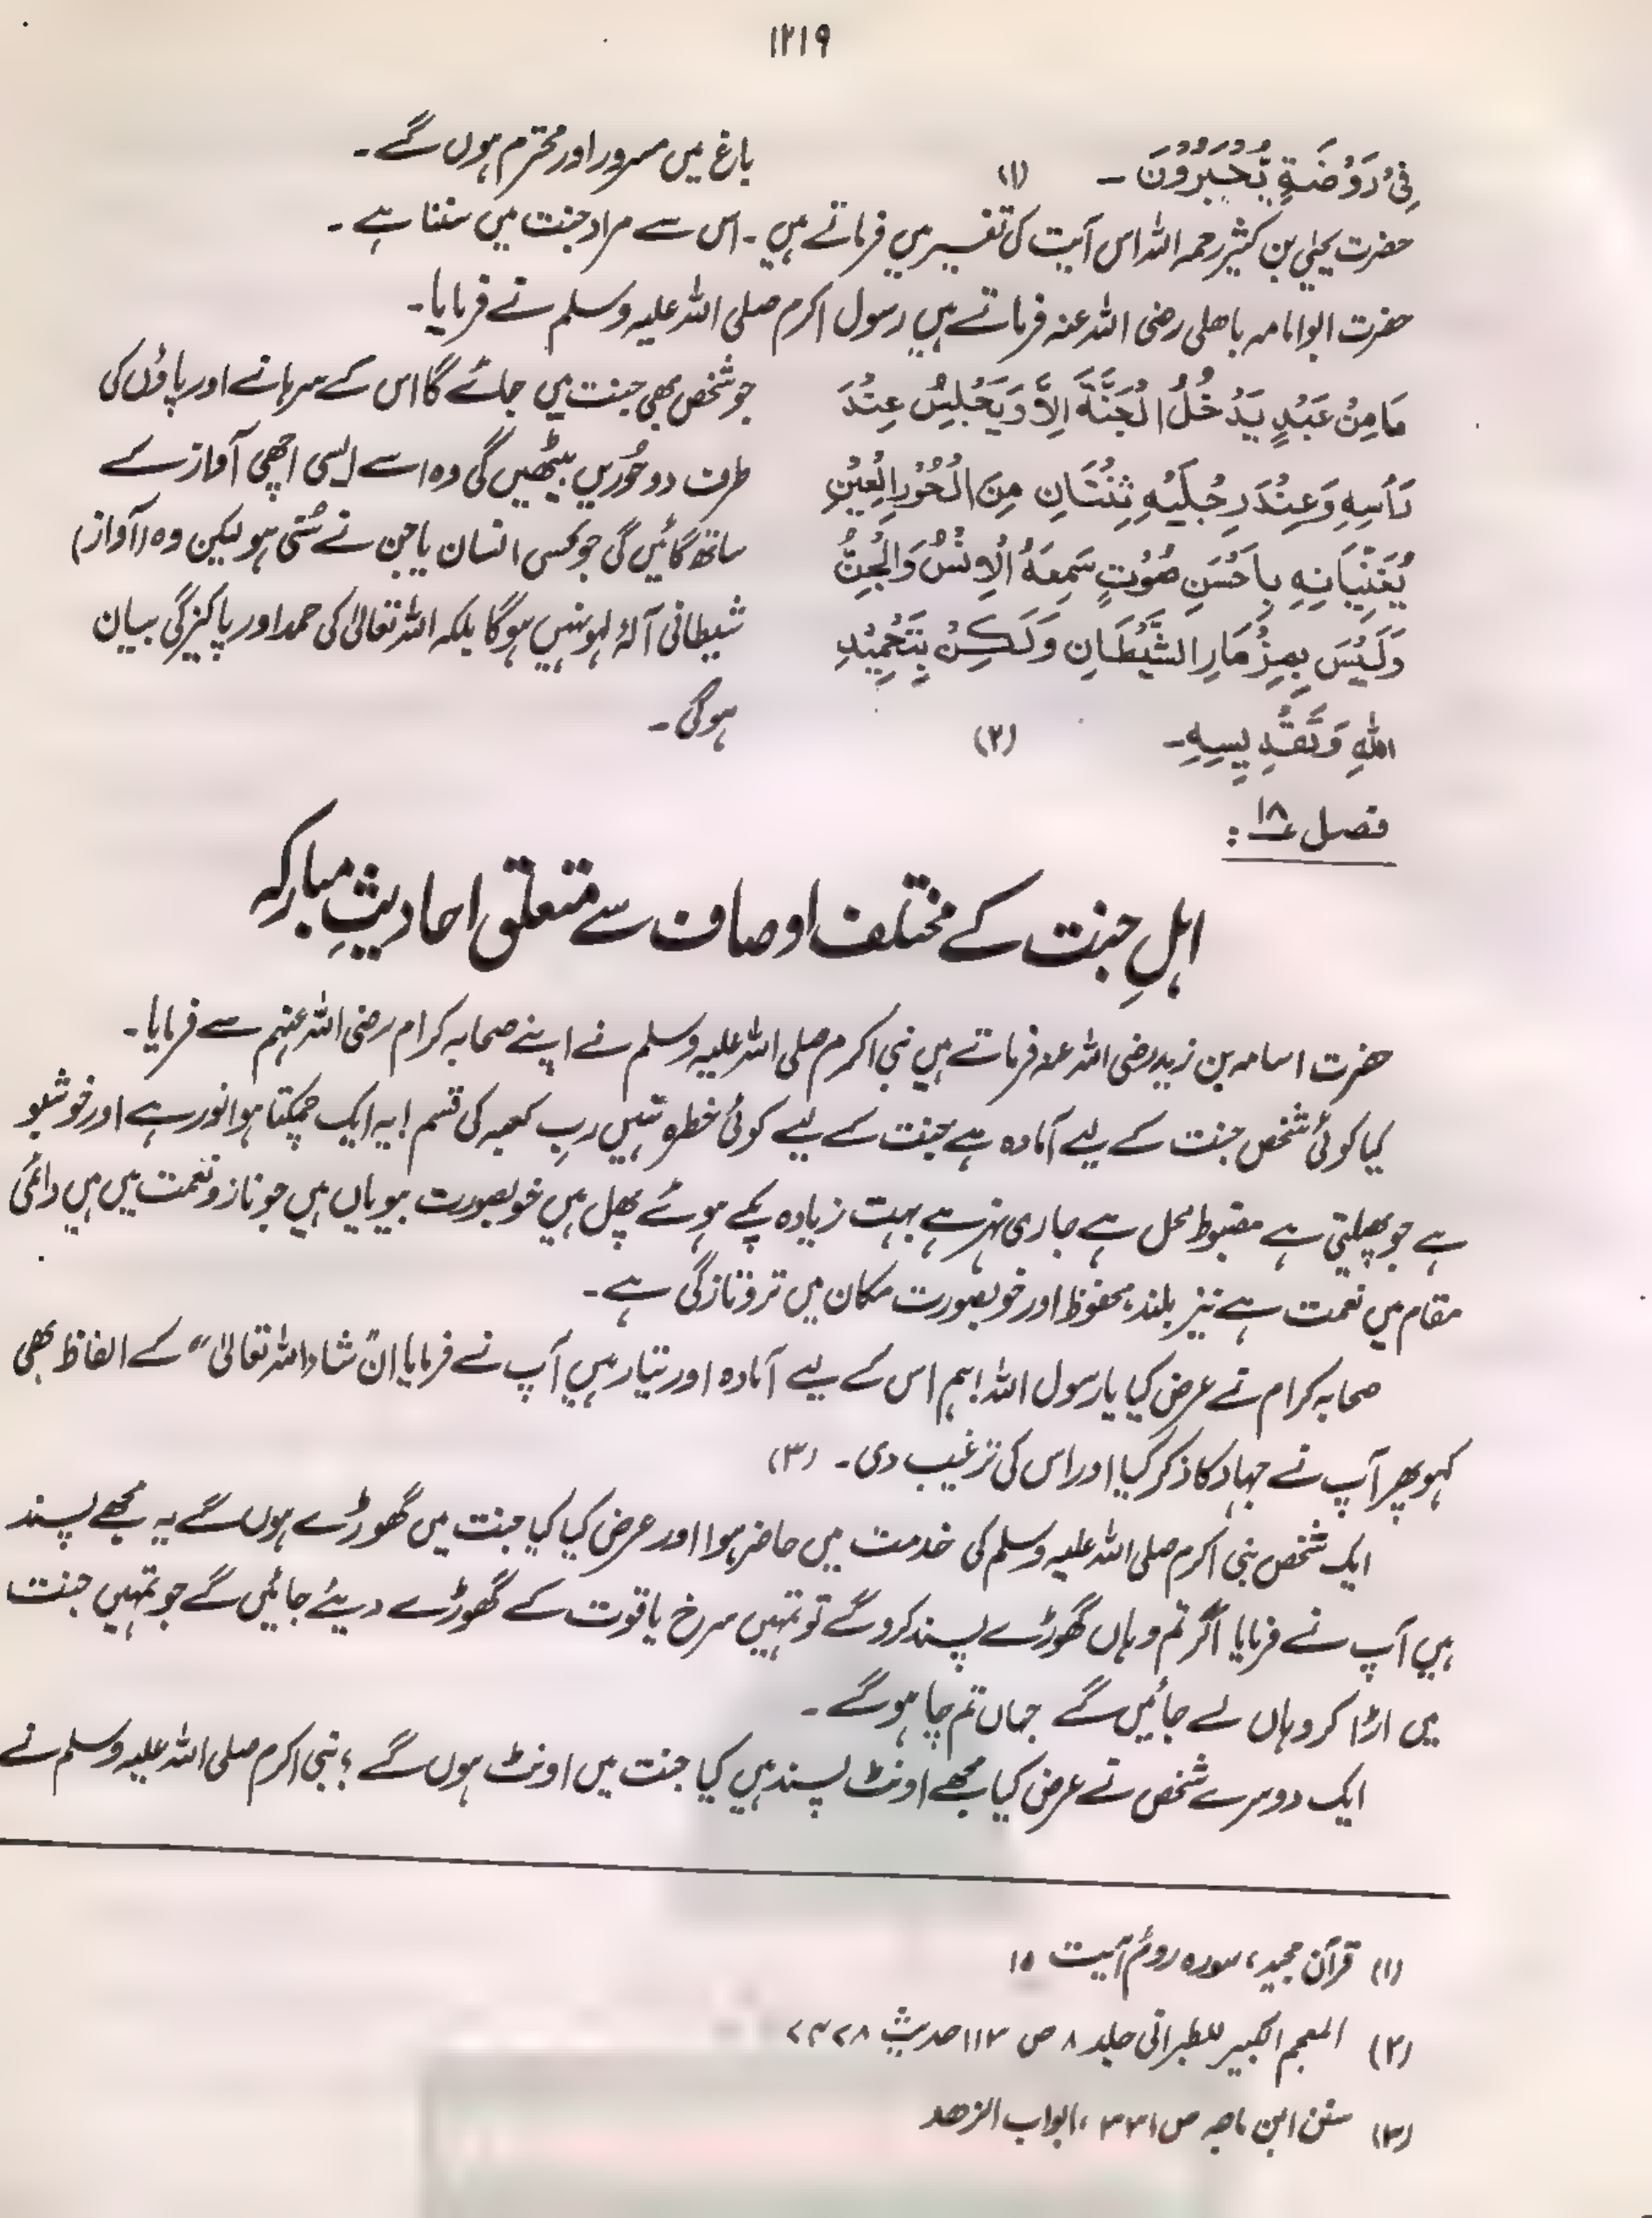 ۱۲۱۹
فِیْ رَوْضَةٍ یُّحْبَرُوْنَ ۔ (۱) باغ میں مسرور اور محترم ہوں گے ۔
حضرت یحیٰی بن کثیر رحمہ اللہ اس آیت کی تفسیر میں فرماتے ہیں ۔ اس سے مراد جنت میں سننا ہے ۔
حضرت ابوامامہ باھلی رضی اللہ عنہ فرماتے ہیں رسول اکرم صلی اللہ علیہ وسلم نے فرمایا ۔
مَا مِنْ عَبْدٍ یَدْخُلُ الْجَنَّةَ اِلَّا وَیَجْلِسُ عِنْدَ جو شخص بھی جنت میں جائے گا اس کے سرہانے اور پاؤں کی
رَأْسِهِ وَعِنْدَ رِجْلَیْهِ ثِنْتَانِ مِنَ الْحُوْرِ الْعِیْنِ طرف دو حوریں بیٹھیں گی وہ اسے ایسی اچھی آواز کے
یُغَنِّیَانِهِ بِاَحْسَنِ صَوْتٍ سَمِعَهُ الْاِنْسُ وَالْجِنُّ ساتھ گائیں گی جو کسی انسان یا جن نے سُنی ہو لیکن وہ (آواز)
وَلَیْسَ بِمِزْمَارِ الشَّیْطَانِ وَلٰکِنْ بِتَحْمِیْدِ شیطانی آلۂ لہو نہیں ہوگا بلکہ اللہ تعالیٰ کی حمد اور پاکیزگی بیان
اللهِ وَتَقْدِیْسِهِ ۔ (۲) ہوگی ۔
فصل ۱۸ :
اہلِ جنت کے مختلف اوصاف سے متعلق احادیثِ مبارکہ
حضرت اسامہ بن زید رضی اللہ عنہ فرماتے ہیں نبی اکرم صلی اللہ علیہ وسلم نے اپنے صحابہ کرام رضی اللہ عنہم سے فرمایا ۔
کیا کوئی شخص جنت کے لیے آمادہ ہے جنت کے لیے کوئی خطرہ نہیں ربِ کعبہ کی قسم ! یہ ایک چمکتا ہوا نور ہے اور خوشبو
ہے جو پھیلتی ہے مضبوط محل ہے جاری نہر ہے بہت زیادہ پکے ہوئے پھل ہیں خوبصورت بیویاں ہیں جو ناز و نعمت میں ہیں دائمی
مقام میں نعمت ہے نیز بلند، محفوظ اور خوبصورت مکان میں تروتازگی ہے ۔
صحابہ کرام نے عرض کیا یا رسول اللہ ! ہم اس کے لیے آمادہ اور تیار ہیں آپ نے فرمایا ان شاءاللہ تعالیٰ" کے الفاظ بھی
کہو پھر آپ نے جہاد کا ذکر کیا اور اس کی ترغیب دی ۔ (۳)
ایک شخص نبی اکرم صلی اللہ علیہ وسلم کی خدمت میں حاضر ہوا اور عرض کیا کیا جنت میں گھوڑے ہوں گے یہ مجھے پسند
ہیں آپ نے فرمایا اگر تم وہاں گھوڑے پسند کرو گے تو تمہیں سرخ یاقوت کے گھوڑے دیئے جائیں گے جو تمہیں جنت
میں اڑا کر وہاں لے جائیں گے جہاں تم چاہو گے ۔
ایک دوسرے شخص نے عرض کیا مجھے اونٹ پسند ہیں کیا جنت میں اونٹ ہوں گے ؟ نبی اکرم صلی اللہ علیہ وسلم نے
(۱) قرآن مجید، سورہ روم آیت ۱۵
(۲) المعجم الکبیر للطبرانی جلد ۸ ص ۱۱۳ حدیث ۷۴۷۸
(۳) سنن ابن ماجہ ص ۳۳۱، ابواب الزھد